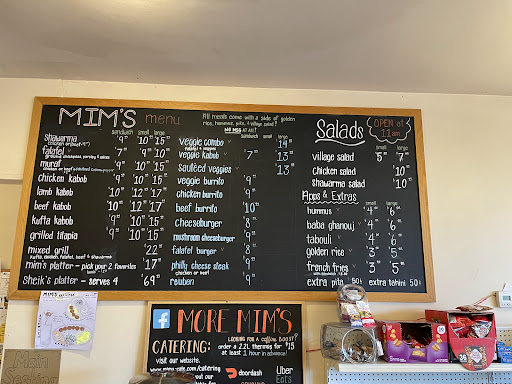 MIM'S menu
All meals come with a side of golden
rice, hummus, pita, & village salad!
NO MSG AT ALL!
sandwich small large
shawarma 9 10 15
chicken or beef
falafel 7 9 10
ground chickpeas, parsley & spices
murat 9 10 15
chicken kabob 9 10 15
lamb kabob 10 12 17
beef kabob 10 12 17
kufta kabob 9 10 15
grilled tilapia 9 10 15
mixed grill 22
kufta, chicken, falafel, beef & shawarma
mim's platter - pick your 2 favorites 17
sheik's platter - serves 4 69
sandwich small large
veggie combo 14
veggie kabob 7 13
sautéed veggies 13
veggie burrito 9
chicken burrito 9
beef burrito 10
cheeseburger 8
mushroom cheeseburger 9
falafel burger 8
philly cheese steak 9
chicken or beef
reuben 9
Salads
OPEN at
11am
small large
village salad 5 7
chicken salad 10
shawarma salad 10
Apps & Extras
hummus 4 6
baba ghanouj 4 6
tabouli 4 6
golden rice 3 5
french fries 3 5
extra pita 50¢ extra tahini 50¢
MORE MIM'S
CATERING:
visit our website.
www.mims-cafe.com/catering
LOOKING FOR A caffeine BOOST?
order a 2.2L thermos for $15
at least 1 hour in advance!
doordash
Uber
Eats